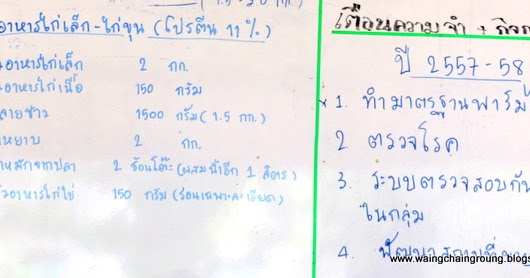 อาหารไก่เล็ก-ไก่ขุน (โปรตีน 11%)
อาหารไก่เล็ก 2 กก.
อาหารไก่เนื้อ 150 กรัม
ลายข้าว 1500 กรัม (1.5 กก.)
หยาบ 2 กก.
หมักจากปลา 2 ช้อนโต๊ะ (ผสมน้ำอีก 1 ลิตร)
อาหารไก่ไข่ 150 กรัม (ร่อนเฉพาะละเอียด)
เตือนความจำ +
ปี 2557-58
1. ทำมาตรฐานฟาร์ม
2 ตรวจโรค
3. ระบบตรวจสอบกัน
ในกลุ่ม
4.
www.waingchaingroung.blog